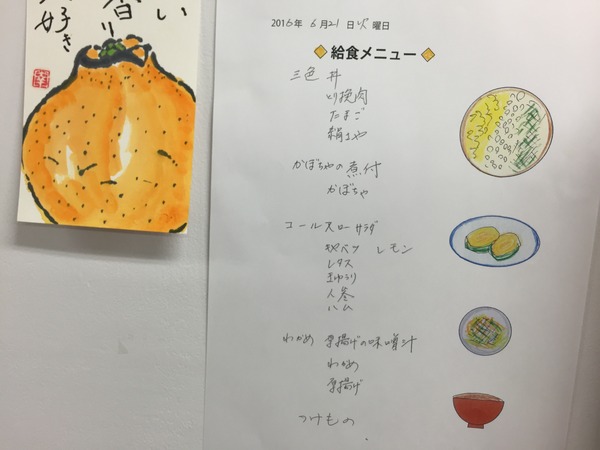 い
香り
好き
2016年 6月21日火曜日
給食メニュー
三色丼
とり挽肉
たまご
絹さや
かぼちゃの煮付
かぼちゃ
コールスローサラダ
キャベツ レモン
レタス
きゅうり
人参
ハム
わかめ 厚揚げの味噌汁
わかめ
厚揚げ
つけもの